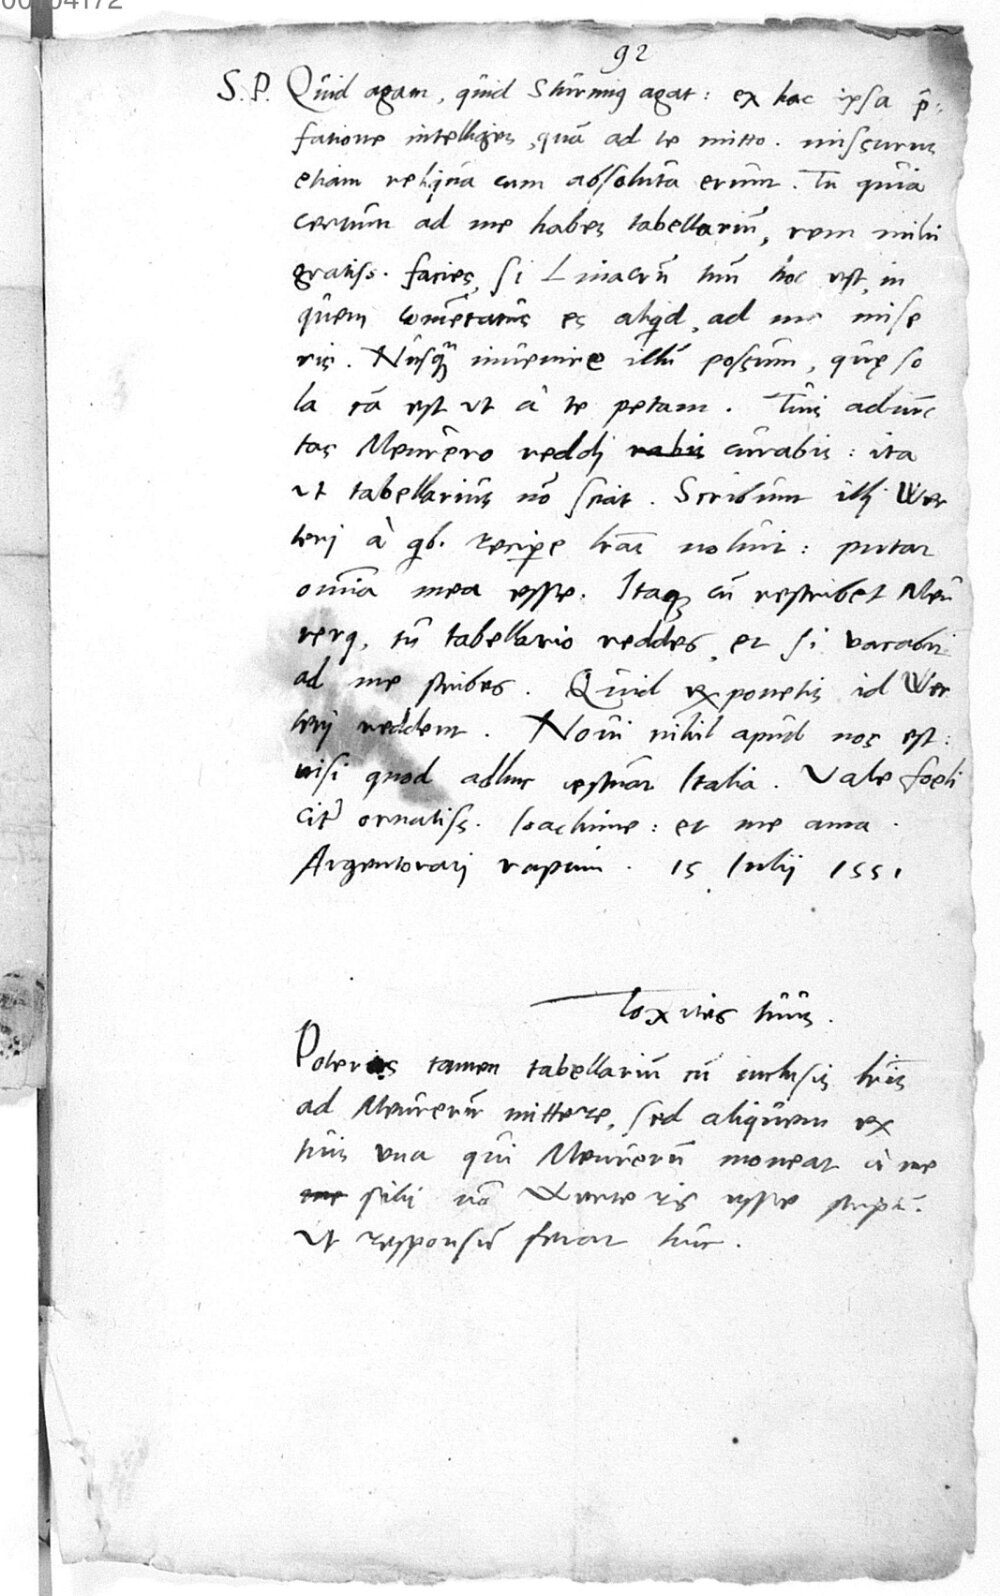 92
S. P. Quid agam, quid Sturmiꝰ agat: ex hac ipsa p̄-
fatione intelliges, quā ad te mitto. missurus
etiam reliqua cum absoluta erunt. Tu quia
certum ad me habes tabellariū, rem mihi
gratiss. facies, si Linacrū tuū hoc est, in
quem comētatus es aliqd, ad me mise
ris. Nusqꝫ invenire illū possum, quę so
la cā est ut à te petam. Tuis adiunc
tas Meurero reddj curabis: ita
ut tabellarius nō sciat. Scribunt illj Wer
terj à qb. recipe lrās nolunt: putat
omīa mea esse. Itaqꝫ cū rescribet Meu
rerꝰ, tū tabellario reddes, et si vacabit
ad me scribes. Quid exponetis id Wer
terj reddent. Novi nihil apud nos est:
nisi quod adhuc æstuat Italia. Vale foeli
citr̄ ornatiss. Ioachime: et me ama.
Argentoratj raptim. 15 Iulij 1551
Toxites tuus.
Poteris tamen tabellariū cū inclusis lrīs
ad Meurerū mittere, sed aliquem ex
tuis una qui Meurerū moneat à me
sibj nō Werteris esse scriptū.
ut responsū ferat huc.